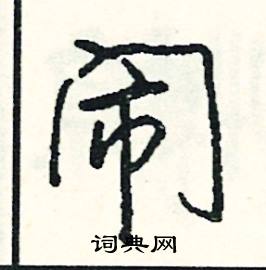 闹
词典网